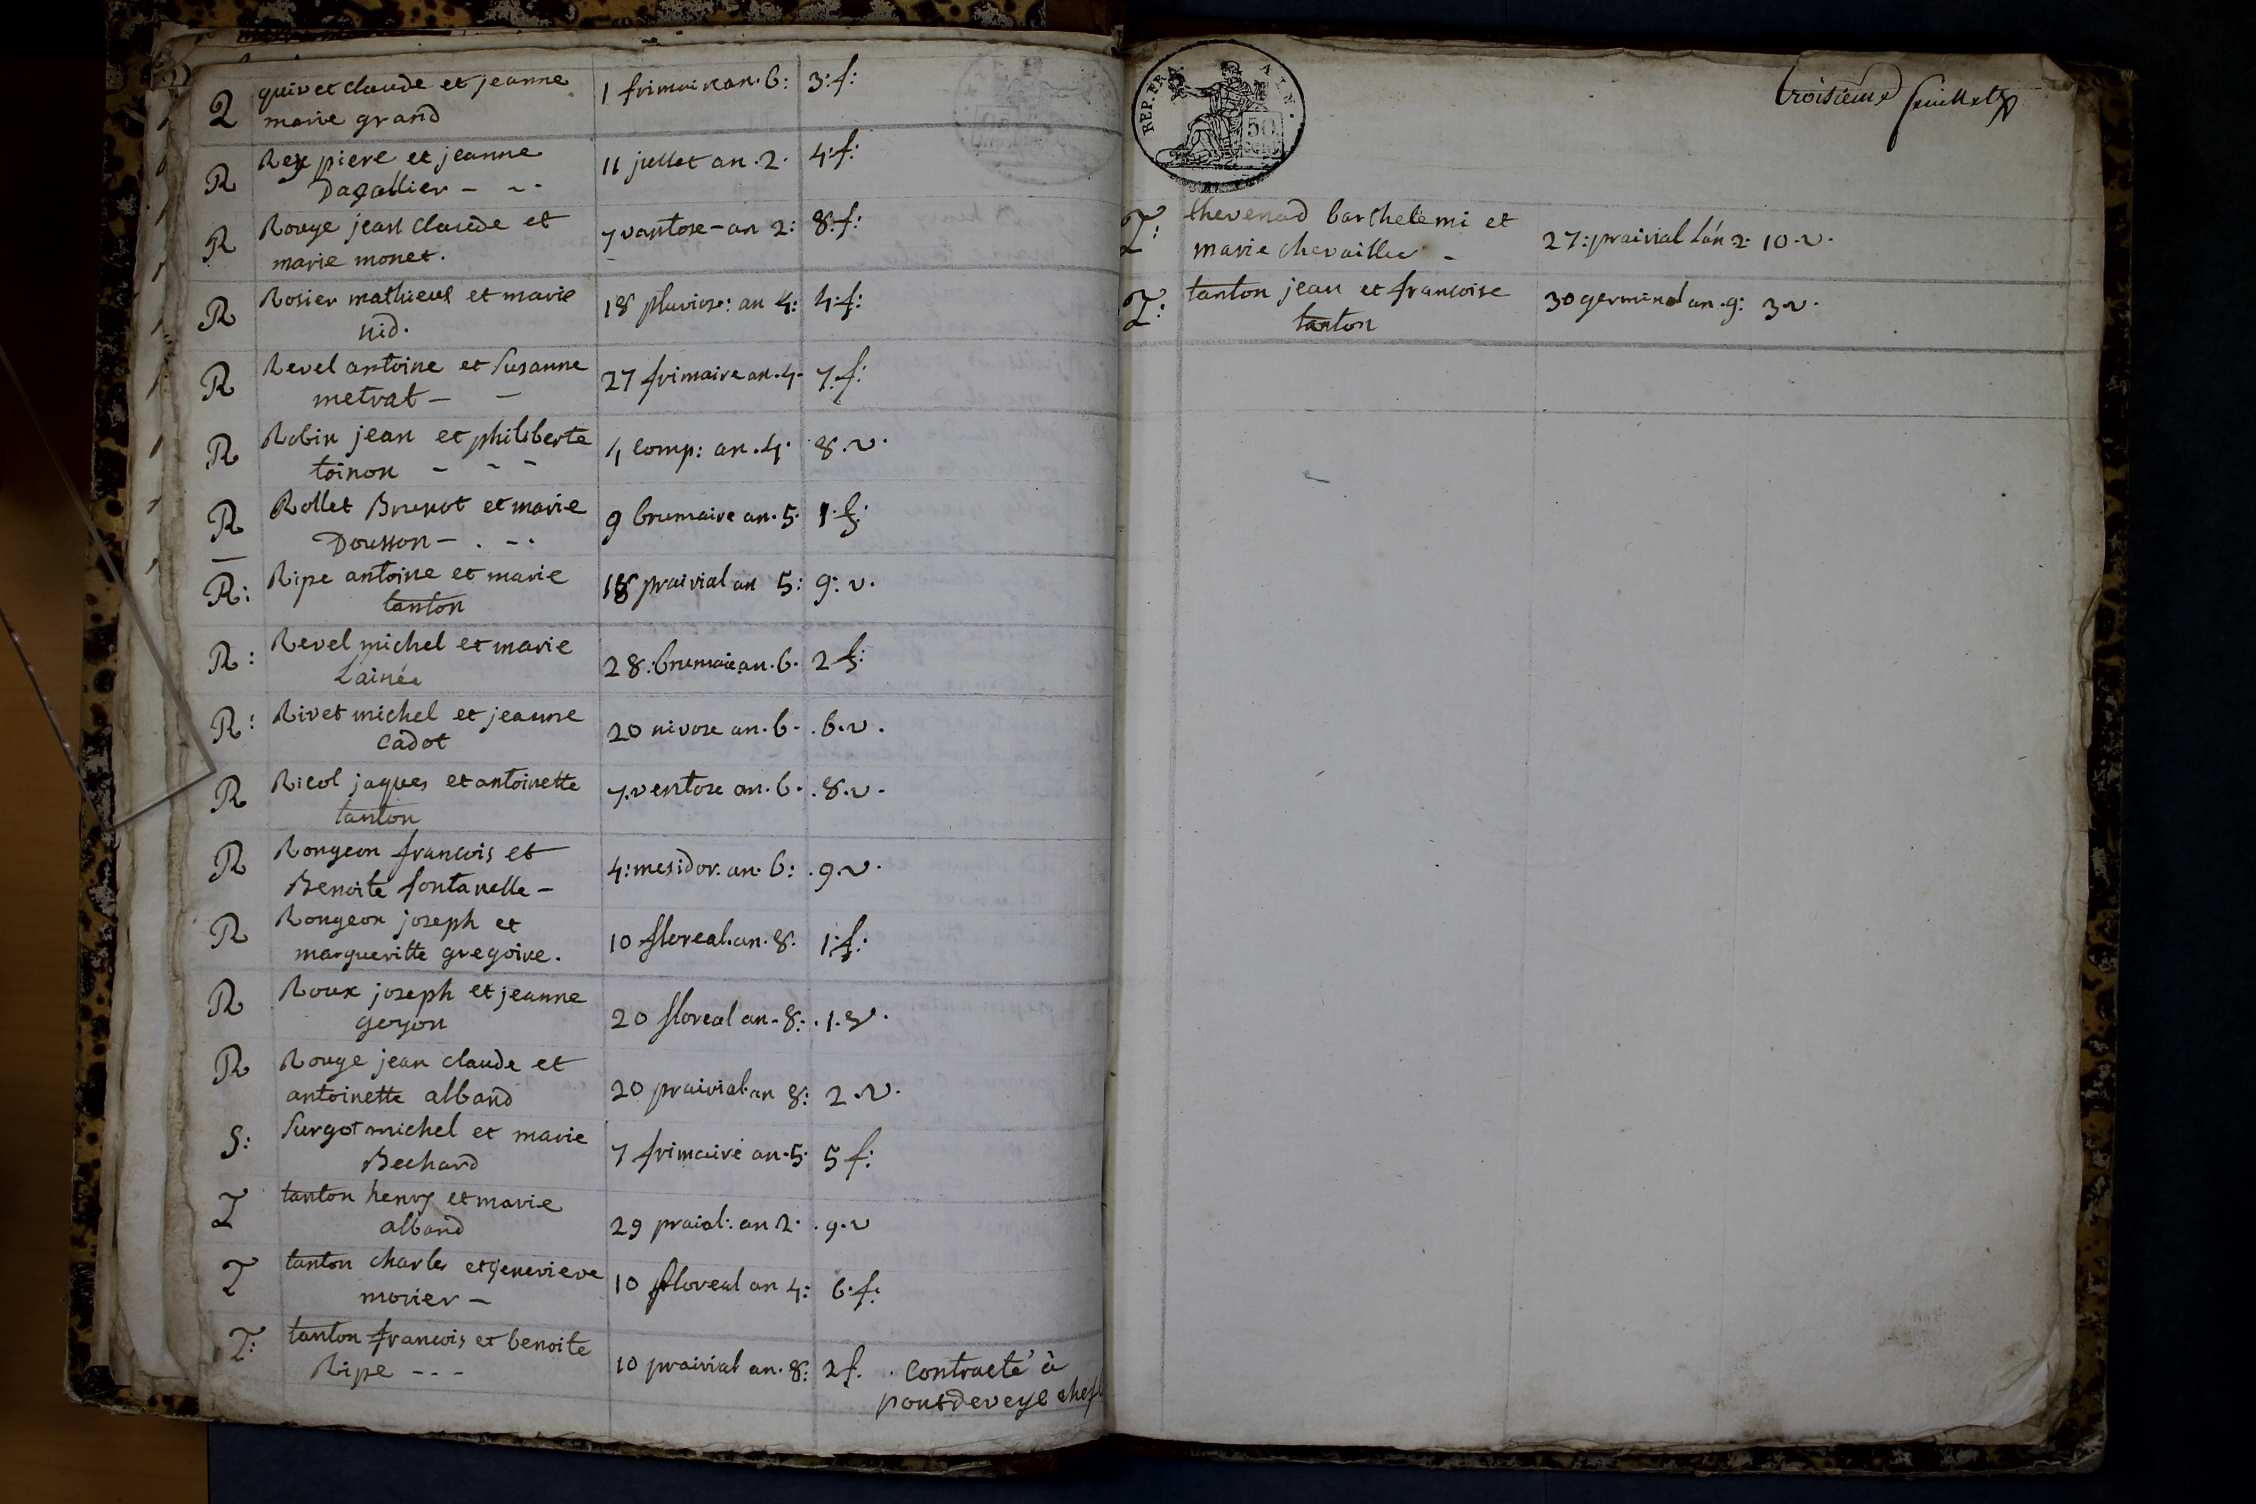 Q quivet claude et jeanne 1 frimaire an. 6: 3: f:
marie grand
R Rey piere et jeanne 11 juillet an. 2. 4: f:
Dagallier - - -
R Rouge jean claude et 7 vantose - an 2: 8: f:
marie monet.
R Rosier mathieus et marie 18 pluviose: an 4: 4: f:
nid.
R Revel antoine et Susanne 27 frimaire an. 4. 7. f:
metrat - -
R Robin jean et philiberte 4 comp: an. 4. 8. v.
toinon - - -
R Rollet Brunot et marie 9 brumaire an. 5. 1. f:
Dousson - . - .
R: Ripe antoine et marie 18 prairial an 5: 9: v.
tanton
R: Revel michel et marie 28. brumaire an. 6. 2 f:
Lainée
R: Rivet michel et jeanne 20 nivose an. 6. 6. v.
cadot
R Ricol jaques et antoinette 7. ventose an. 6. 8. v.
tanton
R Rongeon francois et 4: mesidor. an. 6: 9. v.
Benoite fontanelle -
R Rongeon joseph et 10 floreal. an. 8. 1: f:
margueritte gregoire.
R Roux joseph et jeanne 20 floreal an. 8. 1. v.
goyon
R Rouge jean claude et 20 prairial an 8: 2. v.
antoinette alband
S: Surgot michel et marie 7 frimaire an. 5. 5 f:
Bechard
T tanton henry et marie 29 praial: an 2. 9. v
alband
T tanton charles et genevieve 10 floreal an 4: 6. f:
morier -
T: tanton francois et benoite 10 prairial an. 8: 2 f. contracté à
Ripe - - - pontdeveyle
REP. FRA. AIN.
50
troisieme feuillet
T: thevenad barthelemi et 27: prairial l'an 2. 10. v.
marie chevailler -
T: tanton jean et francoise 30 germinal an. 9: 3 v.
tanton